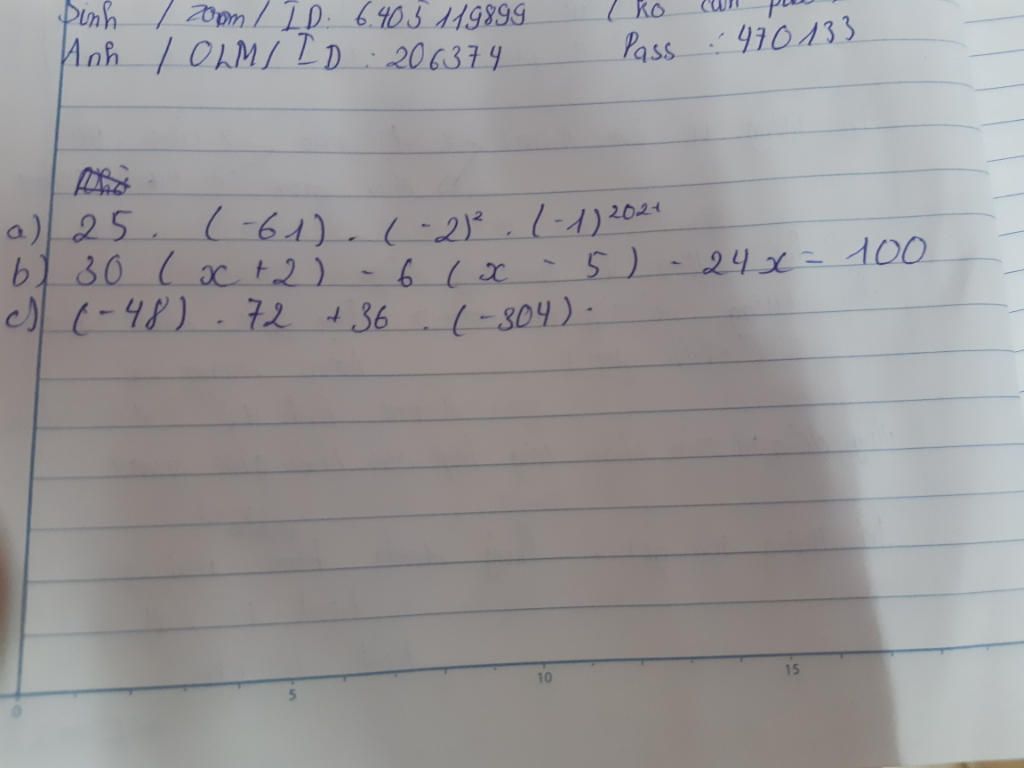 Sinh / zoom / ID: 6405119899 / Ko cần
Anh / OLM / ID : 206374 Pass : 470133
a) 25 . (-61) . (-2)² . (-1)²⁰²¹
b) 30 (x + 2) - 6 (x - 5) - 24x = 100
c) (-48) . 72 + 36 . (-304) .
0 5 10 15